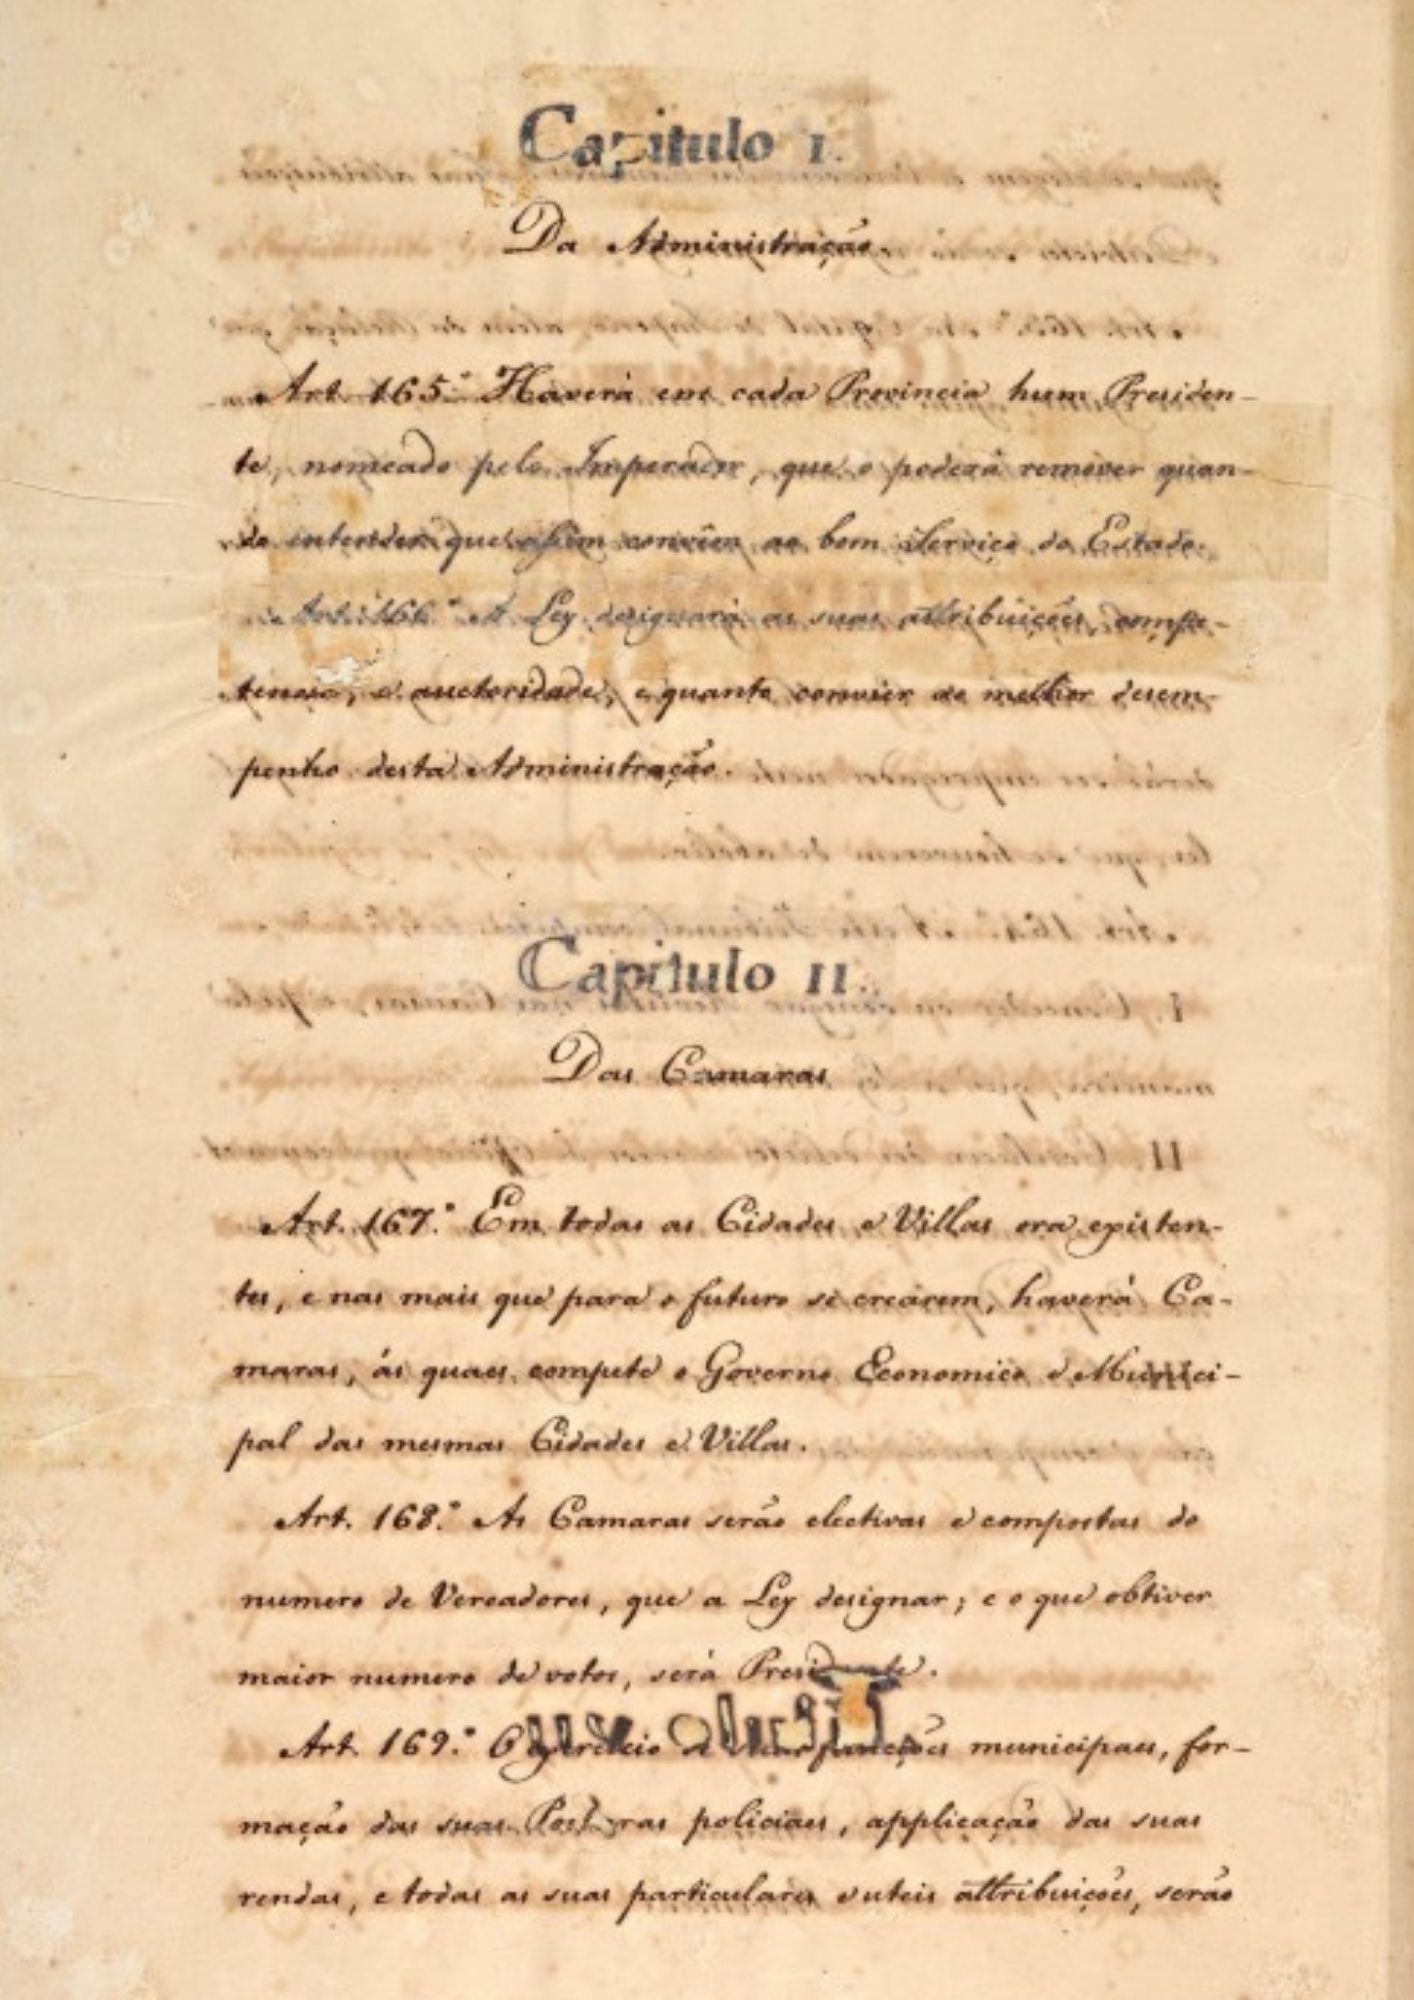 Capitulo I.
Da Administração.
Art. 165.º Haverá em cada Provincia hum Presiden-
te, nomeado pelo Imperador, que o poderá remover quan-
do entender que assim convêm ao bom Serviço do Estado.
Art. 166.º A Ley designará as suas attribuições, compe-
tencia, e auctoridade, e quanto convier ao melhor desem-
penho desta Administração.
Capitulo II.
Das Camaras
Art. 167.º Em todas as Cidades e Villas ora existen-
tes, e nas mais que para o futuro se crearem, haverá Ca-
maras, ás quaes compete o Governo Economico e Munici-
pal das mesmas Cidades e Villas.
Art. 168.º As Camaras serão electivas e compostas do
numero de Vereadores, que a Ley designar; e o que obtiver
maior numero de votos, será Presidente.
Art. 169.º O exercicio de suas funcções municipaes, for-
mação das suas Posturas policiaes, applicação das suas
rendas, e todas as suas particulares e uteis attribuições, serão